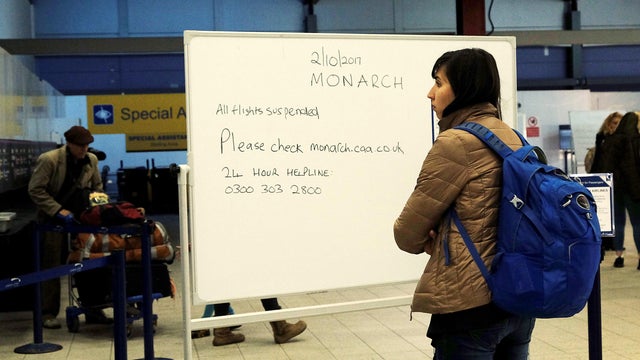 2/10/2017
MONARCH
All flights suspended
Please check monarch.caa.co.uk
24 HOUR HELPLINE:
0300 303 2800
Special A
SPECIAL ASSISTANCE